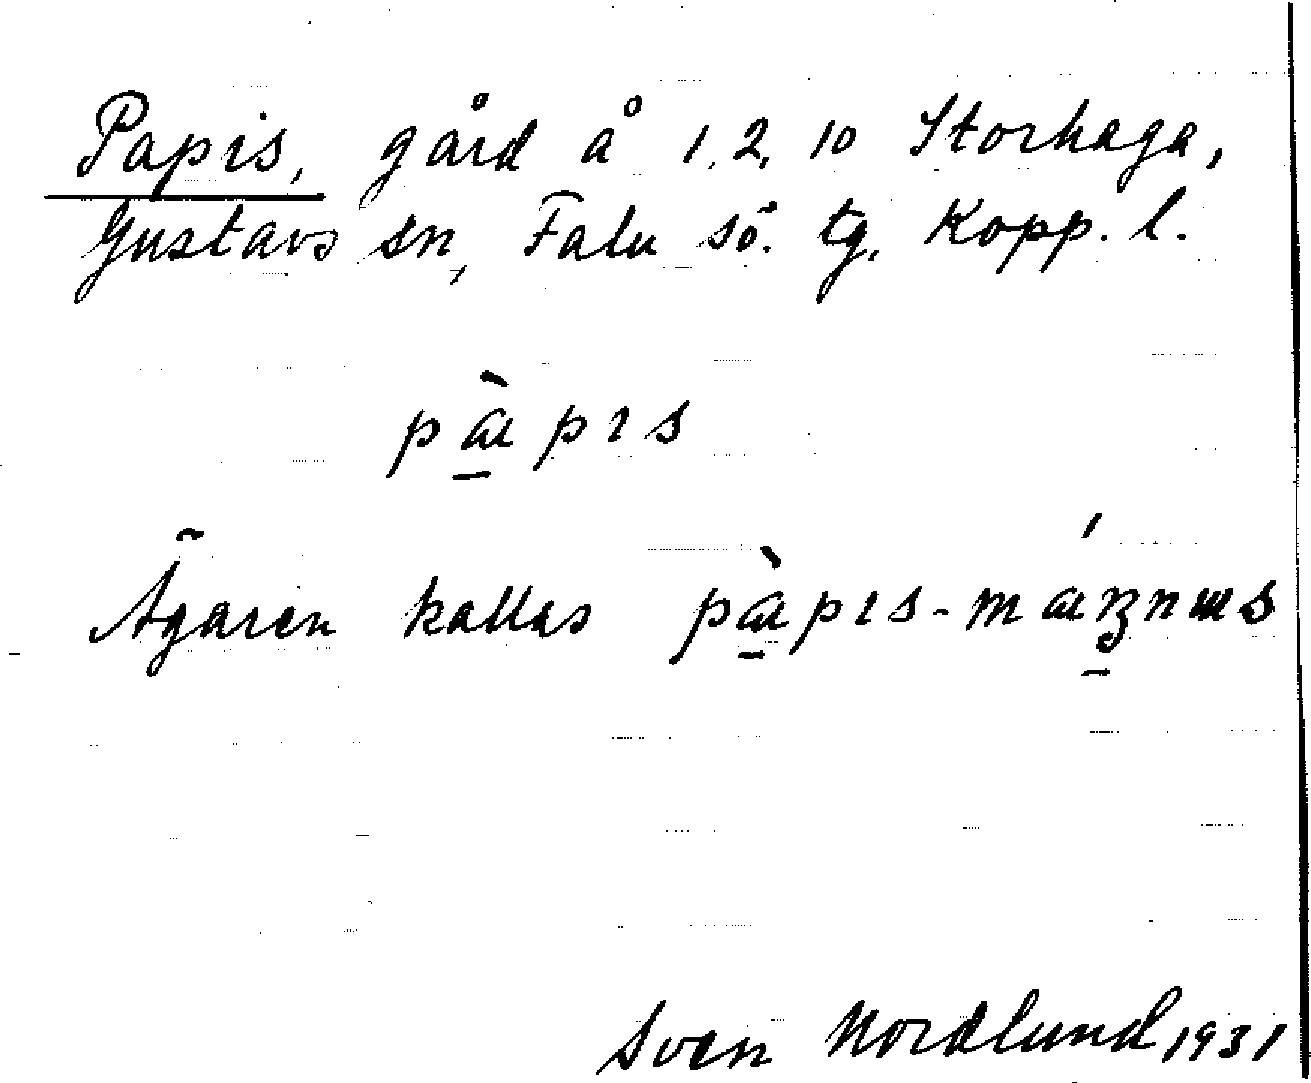 Papis, gård å 1, 2, 10 Storhaga,
Gustavs sn, Falu sö. tg. Kopp. l.
pàpɪs
Ägaren kallas pàpɪs-máŋnɯs
Sven Nordlund, 1931